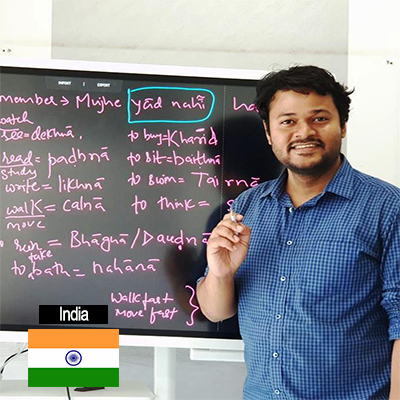 EXPORT IMPORT
member → Mujhe yād nahī̃ ha
watch
see = dekhnā,
to buy = Kharīd
read = paḍhnā
study
to sit = baithna
write = likhnā
to swim = Tairnā
walk = calnā
move
to think = s
run = Bhāghā/Dauḍnā
take
to bath = nahānā
walk fast
move fast
India